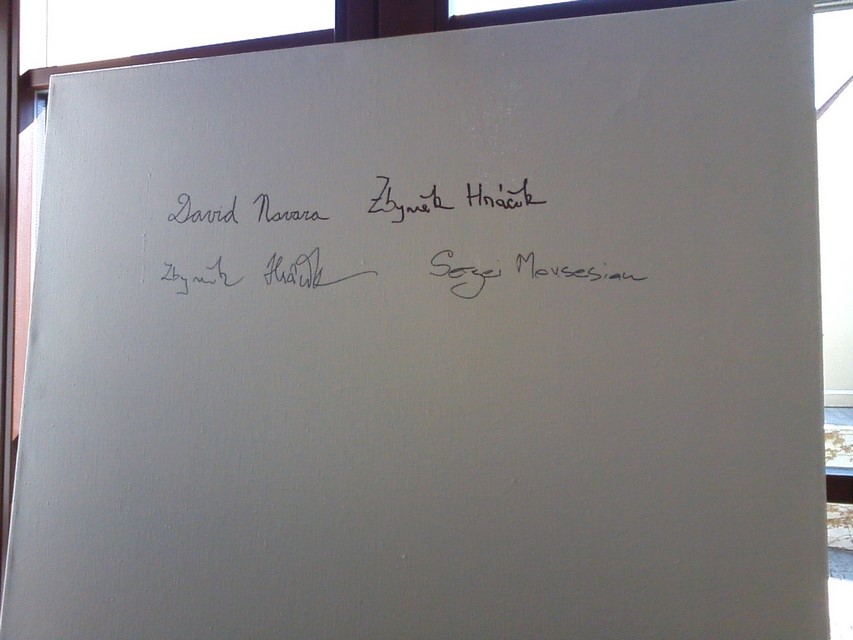 David Navara Zbyněk Hráček
Zbyněk Hráček Sergei Movsesian